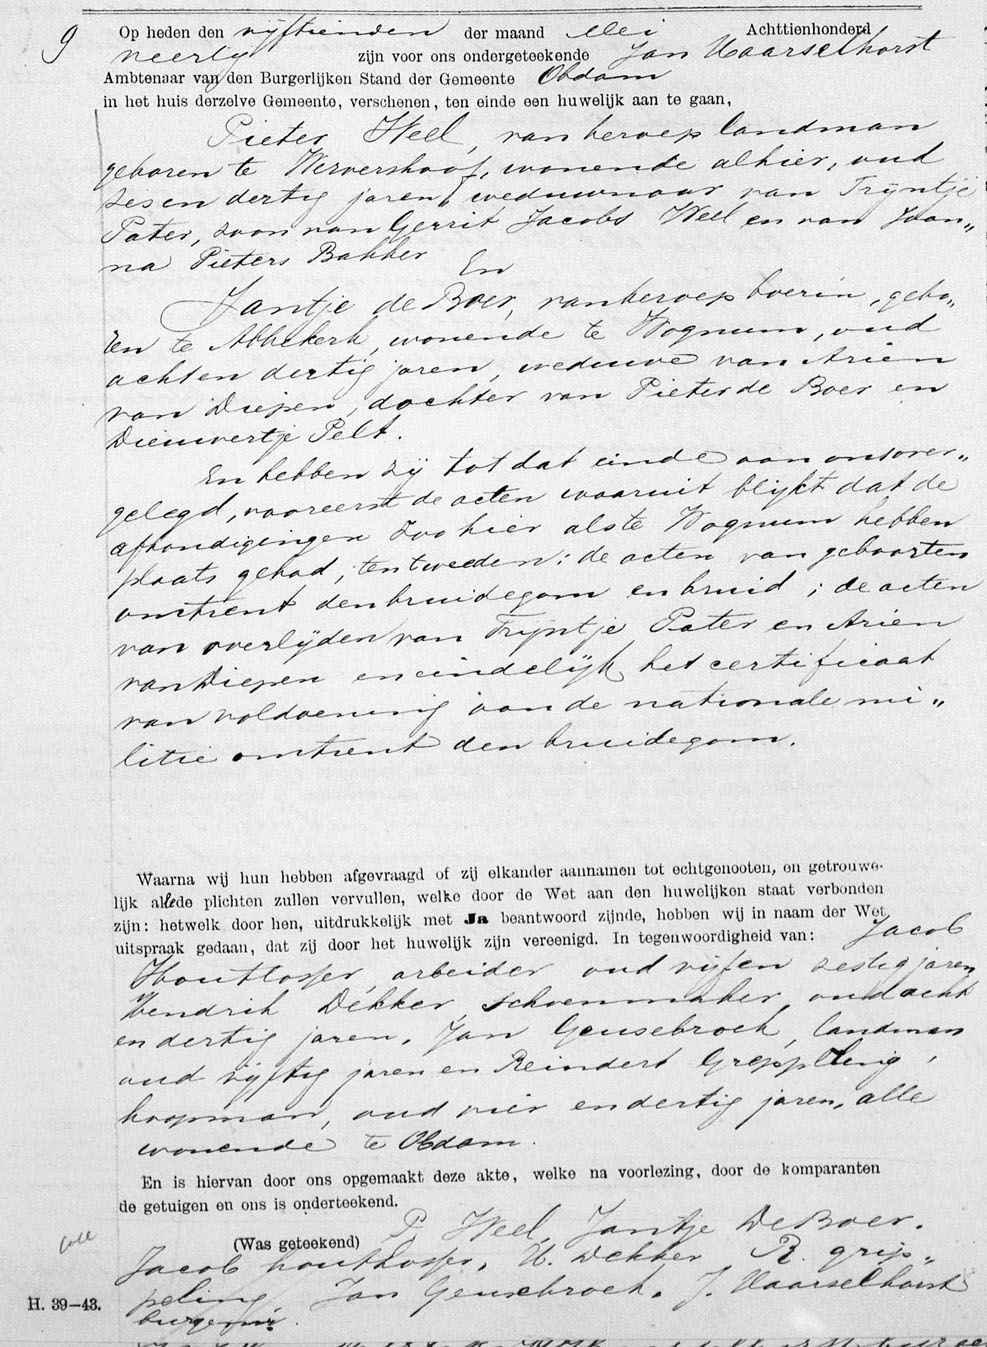 9
Op heden den vijftienden der maand Mei Achttienhonderd
veertig zijn voor ons ondergeteekende Jan Haarselhorst
Ambtenaar van den Burgerlijken Stand der Gemeente Obdam
in het huis derzelve Gemeente, verschenen, ten einde een huwelijk aan te gaan,
Pieter Weel, van beroep landman
geboren te Wervershoof, wonende alhier, oud
zes en dertig jaren, weduwnaar van Trijntje
Pater, zoon van Gerrit Jacobs Weel en van Joan„
na Pieters Bakker
En
Jantje de Boer, van beroep boerin, gebo„
en te Abbekerk, wonende te Wognum, oud
acht en dertig jaren, weduwe van Arien
van Diepen, dochter van Pieter de Boer en
Dieuwertje Pelt.
En hebben zij tot dat einde aan ons over„
gelegd, vooreerst de acten waaruit blijkt dat de
afkondigingen zoo hier als te Wognum hebben
plaats gehad; ten tweeden: de acten van geboorten
omtrent den bruidegom en bruid; de acten
van overlijden van Trijntje Pater en Arien
van Diepen en eindelijk het certificaat
van voldoening aan de nationale mi„
litie omtrent den bruidegom.
Waarna wij hun hebben afgevraagd of zij elkander aannamen tot echtgenooten, en getrouwe-
lijk alle de plichten zullen vervullen, welke door de Wet aan den huwelijken staat verbonden
zijn: hetwelk door hen, uitdrukkelijk met Ja beantwoord zijnde, hebben wij in naam der Wet
uitspraak gedaan, dat zij door het huwelijk zijn vereenigd. In tegenwoordigheid van: Jacob
Houtlosser, arbeider oud vijf en zestig jaren,
Hendrik Dekker, schoenmaker, oud acht
en dertig jaren, Jan Geusebroek, landman
oud vijftig jaren en Reindert Grippeling,
koopman, oud vier en dertig jaren, alle
wonende te Obdam.
En is hiervan door ons opgemaakt deze akte, welke na voorlezing, door de komparanten
de getuigen en ons is onderteekend.
(Was geteekend) P. Weel, Jantje De Boer.
Jacob houtlosser, H. Dekker R. grip„
peling, Jan Geusebroek. J. Haarselhorst
burgemr.
H. 39—43.